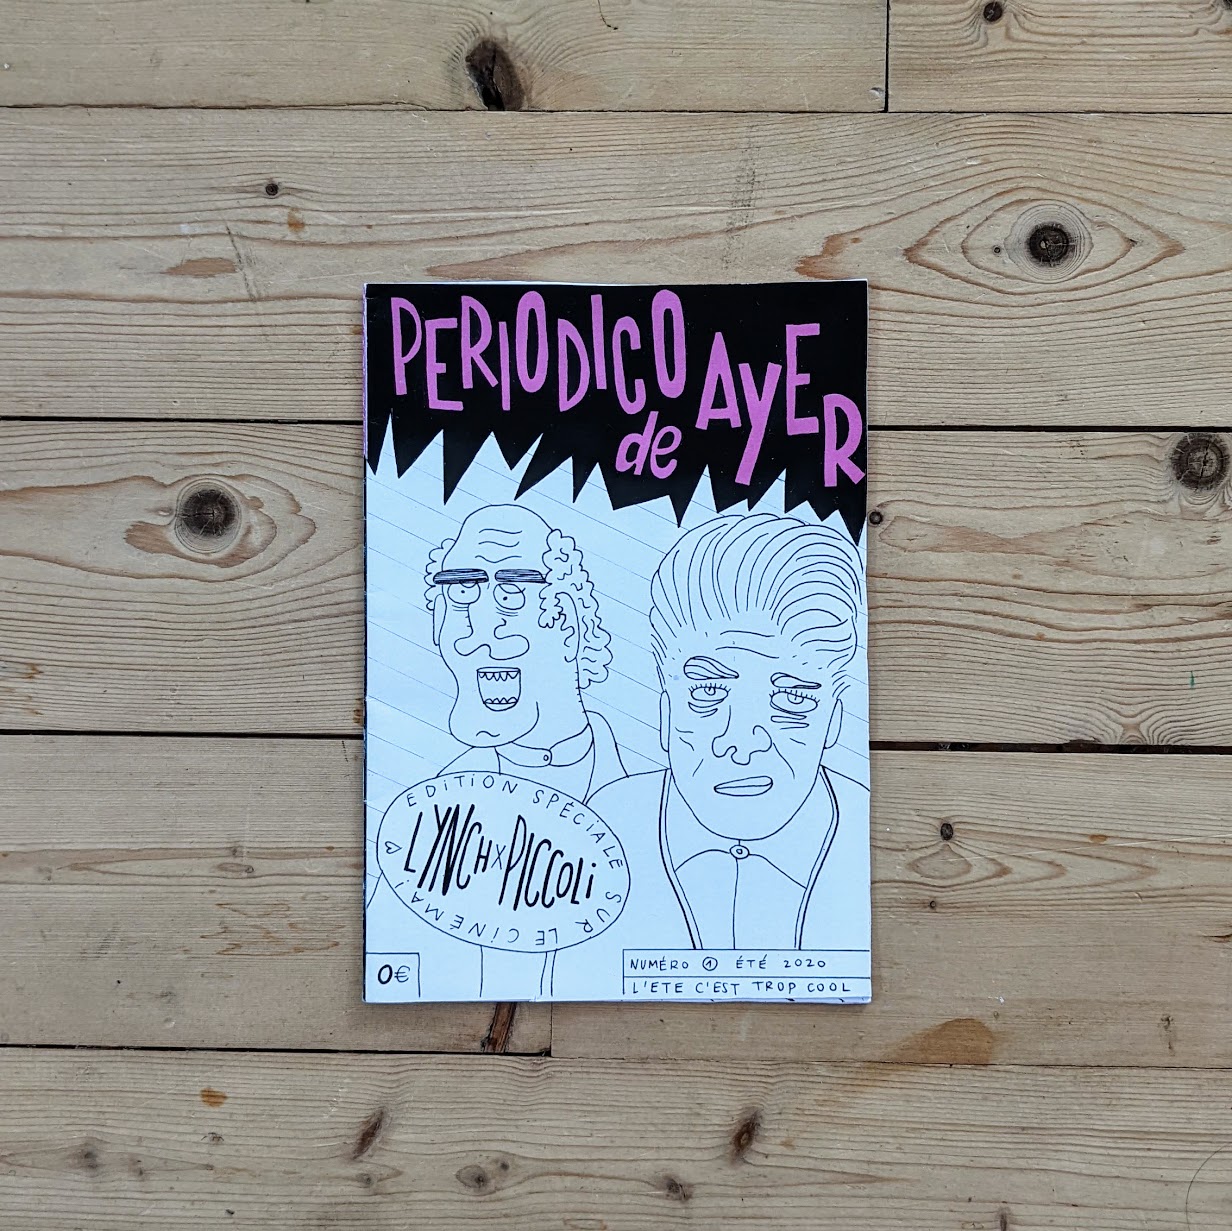 PERIODICO
de AYER
EDITION SPÉCIALE SUR LE CINÉMA!
LYNCH X PICCOLI
0€
NUMÉRO 1 ÉTÉ 2020
L'ETE C'EST TROP COOL